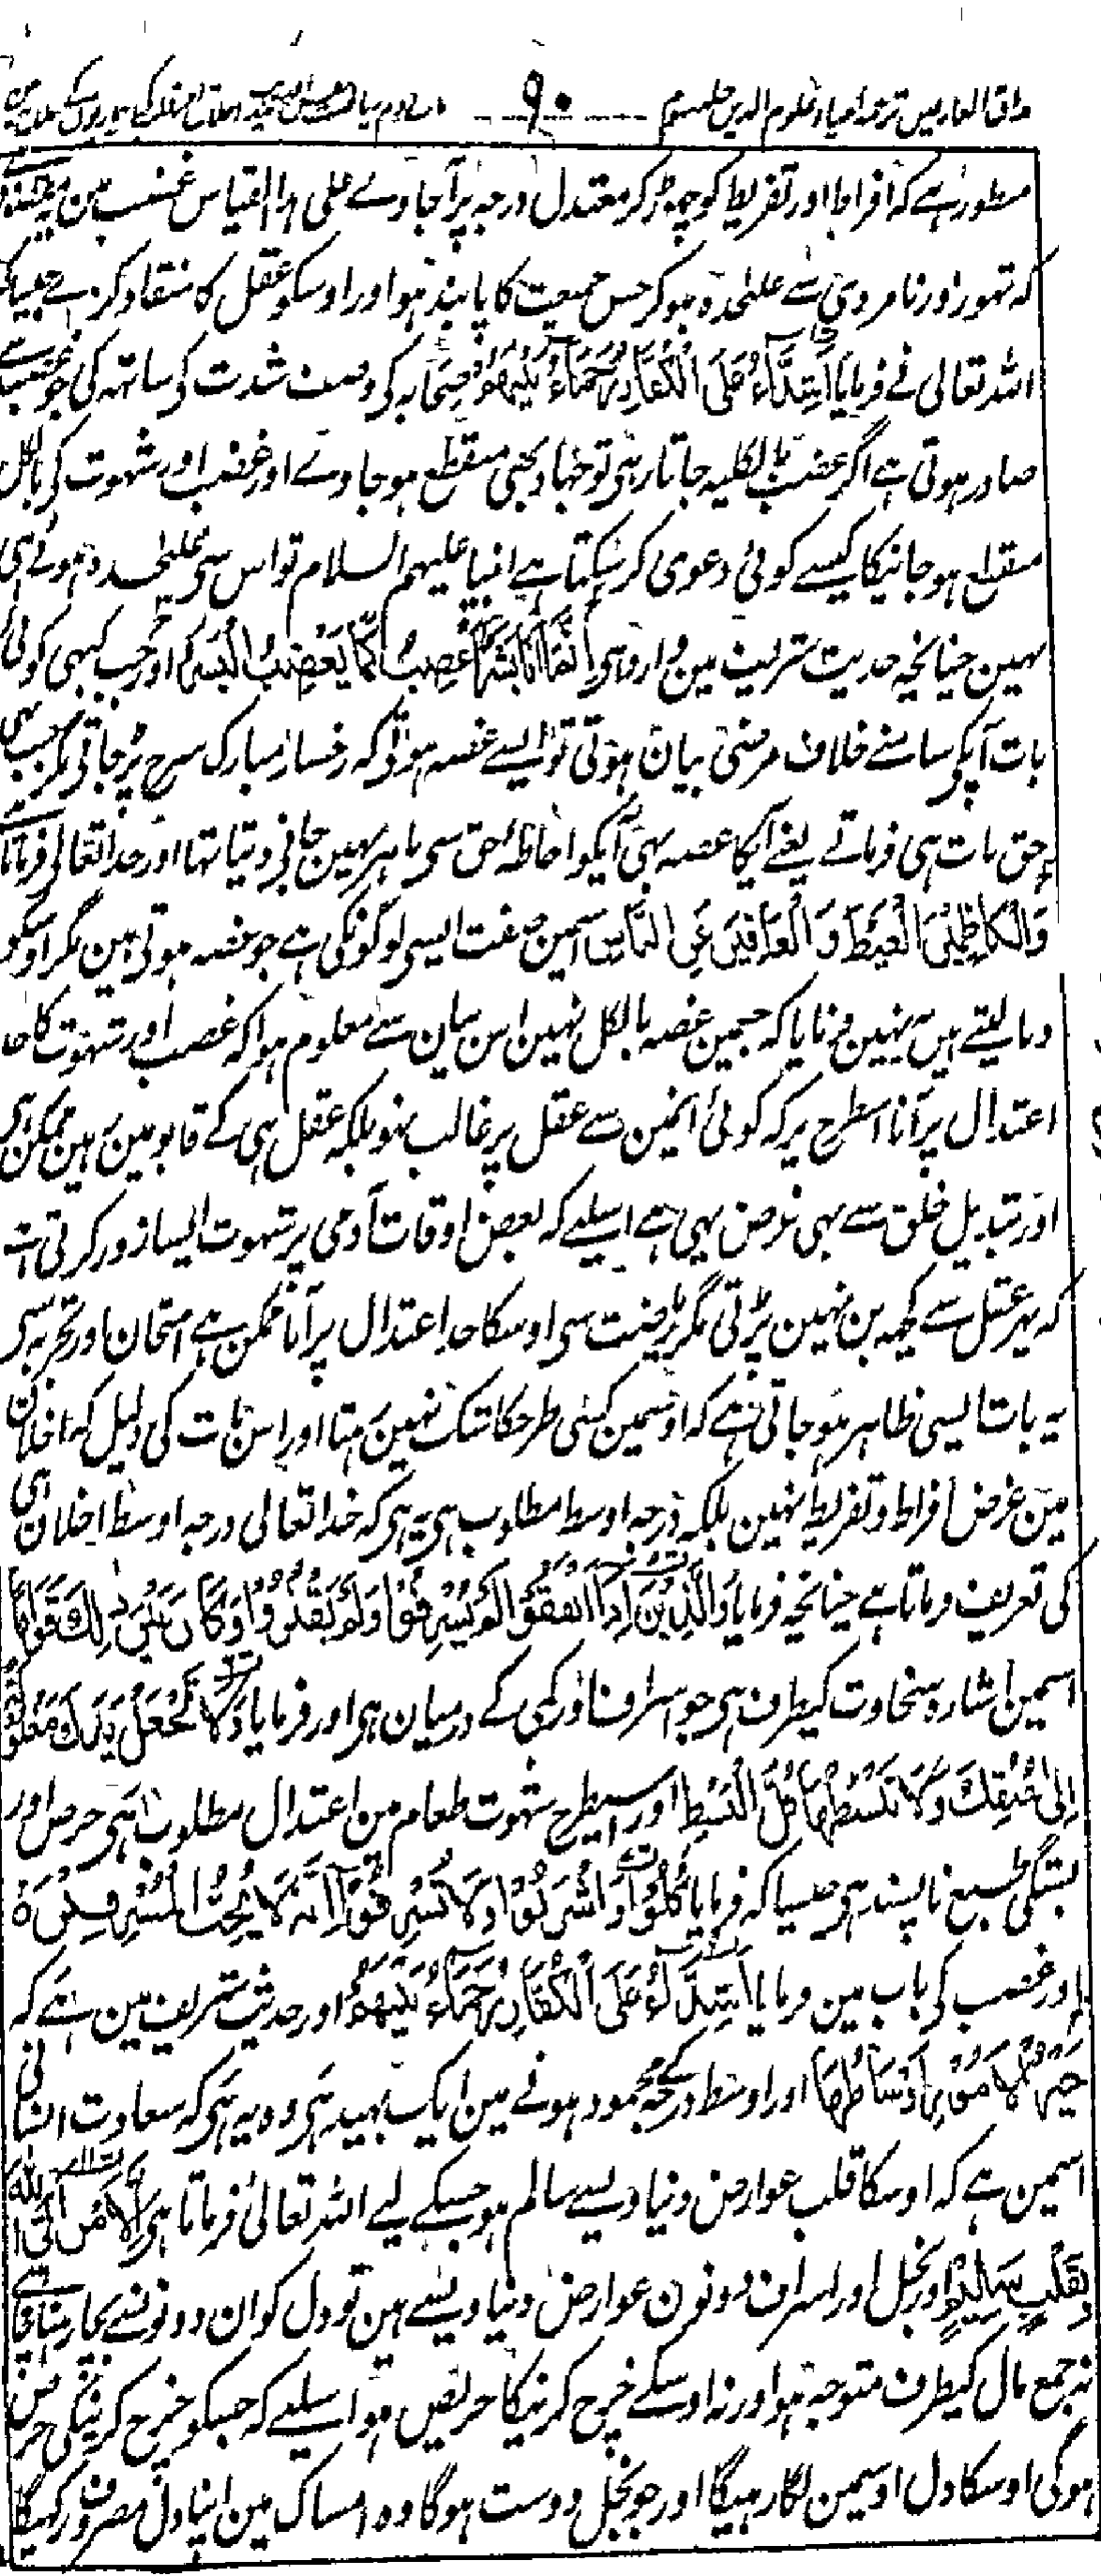 مذاق العارفین ترجمہ احیاء علوم الدین جلد سوم ۹۰
منظور ہے کہ افراط اور تفریط کو چھوڑ کر معتدل درجہ پر آجاوے علی ہذا القیاس غضب مین
کہ تہور اور نامردی سے علٰحدہ ہو کر حسن حمیت کا پابند ہو اور اوسکو عقل کا منقاد کرے جیسا کہ
اللہ تعالی نے فرمایا اَشِدَّآءُ عَلَی الْکُفَّارِ رُحَمَآءُ بَیْنَھُمْ صحابہ کی وصف شدت کے ساتھ کی جو غضب سے
صادر ہوتی ہے اگر غضب بالکلیہ جاتا رہی تو جہاد بھی منقطع ہو جاوے اور غضب اور شہوت کی بالکل
منقلع ہو جانیکا کیسے کوئی دعوی کر سکتا ہے انبیا علیہم السلام تو اس سی علیٰحدہ ہوئے ہی
نہین چنانچہ حدیث شریف مین وارد ہی اِنَّمَا اَنَا بَشَرٌ اَغْضِبُ کَمَا یَغْضِبُ الْبَشَرُ اور جب کبھی کوئی
بات آپکی سامنے خلاف مرضی بیان ہوتی تو ایسے غصہ ہوتی کہ رخسار مبارک سرخ پڑ جاتی مگر جب بھی
حق بات ہی فرماتے یعنے آپکا غصہ بھی آپکو احاطۂ حق سی باہر نہین جانی دیتا تھا اور خدا تعالی فرماتا ہے
وَالْکَاظِمِیْنَ الْغَیْظَ وَ الْعَافِیْنَ عَنِ النَّاسِ اسمین صفت ایسی لوگونکی ہے جو غصہ ہوتی ہین مگر اوسکو
دبا لیتے ہیں یہ نہین فرمایا کہ جنمین غصہ بالکل نہین اس بیان سے معلوم ہوا کہ غضب اور شہوت کا حد
اعتدال پر آنا اسطرح پر کہ کوئی انمین سے عقل پر غالب نہو بلکہ عقل ہی کے قابو مین رہین ممکن ہی
اور تبدیل خلق سے بھی غرض یہی ہے اسلیے کہ بعض اوقات آدمی پر شہوت ایسا زور کرتی ہے
کہ پھر عقل سے کچھ بن نہین پڑتی مگر ریاضت سی اوسکا حد اعتدال پر آنا ممکن ہے امتحان اور تجربہ سی
یہ بات ایسی ظاہر ہو جاتی ہے کہ اوسمین کسی طرحکا شک نہین رہتا اور اس بات کی دلیل کہ اخلاق
مین غرض افراط و تفریط نہین بلکہ درجہ اوسط مطلوب ہی یہ ہی کہ خدا تعالی درجہ اوسط اخلاق ہی
کی تعریف فرماتا ہے چنانچہ فرمایا وَالَّذِیْنَ اِذَا اَنْفَقُوْا لَمْ یُسْرِفُوْا وَلَمْ یَقْتُرُوْا وَکَانَ بَیْنَ ذٰلِکَ قَوَامًا
اسمین اشارہ سخاوت کیطرف ہی جو اسراف اور کمی کے درمیان ہی اور فرمایا وَلَا تَجْعَلْ یَدَکَ مَغْلُوْلَۃً
اِلٰی عُنُقِکَ وَلَا تَبْسُطْھَا کُلَّ الْبَسْطِ اور اسیطرح شہوت طعام مین اعتدال مطلوب ہی حرص اور
بستگی طبع ناپسند ہی جیسا کہ فرمایا کُلُوْا وَاشْرَبُوْا وَلَا تُسْرِفُوْا اِنَّہٗ لَا یُحِبُّ الْمُسْرِفِیْنَ ہ
اور غضب کی باب مین فرمایا اَشِدَّآءُ عَلَی الْکُفَّارِ رُحَمَآءُ بَیْنَھُمْ اور حدیث شریف مین ہے کہ
خَیْرُ الْاُمُوْرِ اَوْسَاطُھَا اور اوسط درجہ کے محمود ہونے مین ایک بھید ہی وہ یہ ہی کہ سعادت انسانی
اسمین ہے کہ اوسکا قلب عوارض دنیاوی سے سالم ہو جسکے لیے اللہ تعالیٰ فرماتا ہی اِلَّا مَنْ اَتَی اللّٰہَ
بِقَلْبٍ سَلِیْمٍ اور بخل اور اسراف دونون عوارض دنیاوی سے ہین تو دل کو ان دونوں سے بچا رہنا چاہیے
نہ جمع مال کیطرف متوجہ ہو اور نہ اوسکے خرچ کرنیکا حریص ہو اسلیے کہ جسکو خرچ کرنیکی حرص
ہوگی اوسکا دل اوسمین لگا رہیگا اور جو بخل دوست ہوگا وہ امساک مین اپنا دل مصروف رکھیگا